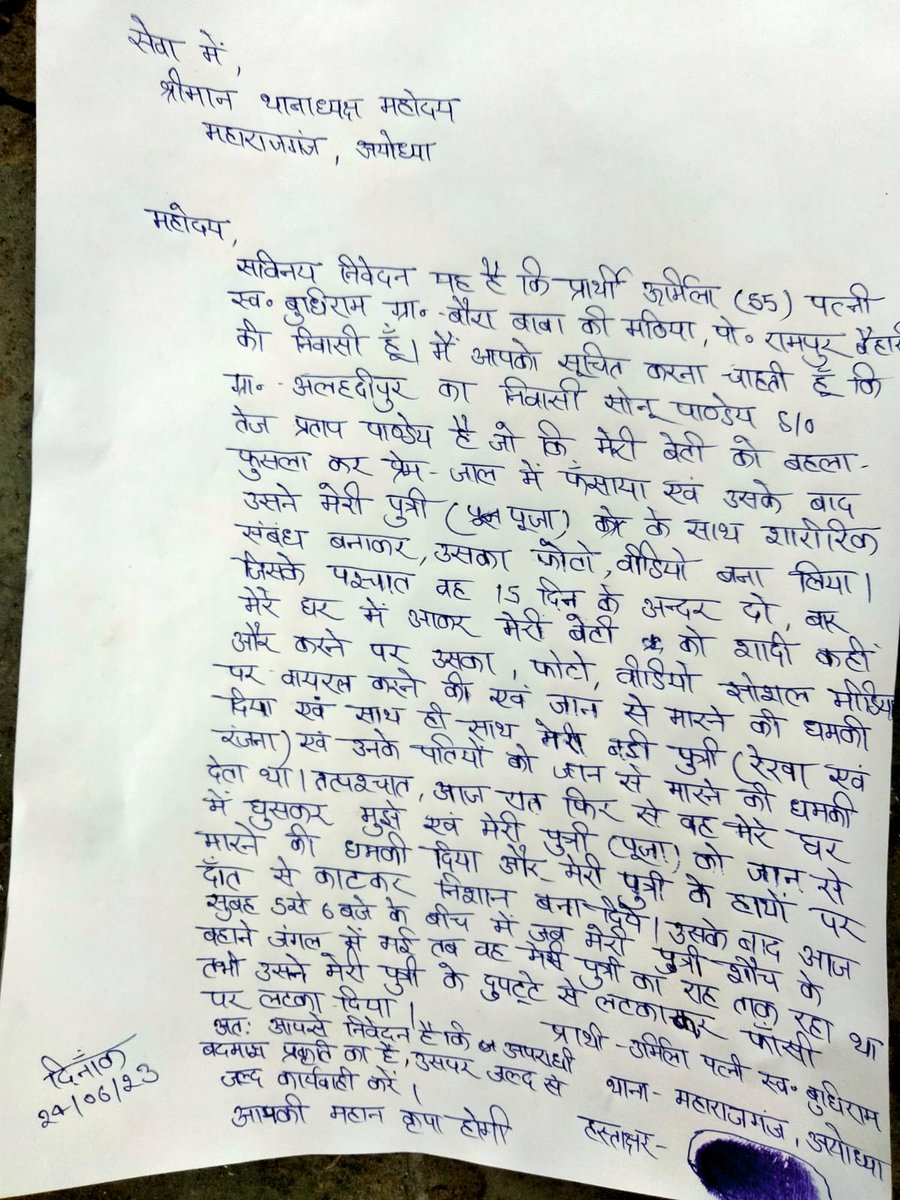 सेवा में,
श्रीमान थानाध्यक्ष महोदय
महाराजगंज, अयोध्या
महोदय,
सविनय निवेदन यह है कि प्रार्थी ऊर्मिला (55) पत्नी
स्व॰ बुधिराम ग्रा॰-बौरा बाबा की मठिया, पो॰ रामपुर
की निवासी हूँ। मैं आपको सूचित करना चाहती हूँ कि
ग्रा॰-अलहदीपुर का निवासी सोनू पाण्डेय S/o
तेज प्रताप पाण्डेय है जो कि मेरी बेटी को बहला-
फुसला कर प्रेम-जाल में फँसाया एवं उसके बाद
उसने मेरी पुत्री (पूजा) के साथ शारीरिक
संबंध बनाकर, उसका फोटो, वीडियो बना लिया।
जिसके पश्चात वह 15 दिन के अन्दर दो, बार
मेरे घर में आकर मेरी बेटी को शादी कहीं
और करने पर उसका, फोटो, वीडियो सोशल मीडिया
पर वायरल करने की एवं जान से मारने की धमकी
दिया एवं साथ ही साथ मेरी बड़ी पुत्री (रेखा एवं
रंजना) एवं उनके पतियों को जान से मारने की धमकी
देता था। तत्पश्चात, आज रात फिर से वह मेरे घर
में घुसकर मुझे एवं मेरी पुत्री (पूजा) को जान से
मारने की धमकी दिया और मेरी पुत्री के हाथों पर
दाँत से काटकर निशान बना दिये। उसके बाद आज
सुबह 5से 6 बजे के बीच में जब मेरी पुत्री शौच के
बहाने जंगल में गई तब वह मेरी पुत्री का राह ताक रहा था
तभी उसने मेरी पुत्री के दुपट्टे से लटकाकर फाँसी
पर लटका दिया।
प्रार्थी-उर्मिला पत्नी स्व॰ बुधिराम
अतः आपसे निवेदन है कि अपराधी
थाना-महाराजगंज, अयोध्या
बदमाश प्रकृति का है, उसपर जल्द से
जल्द कार्यवाही करें।
आपकी महान कृपा होगी
हस्ताक्षर-
दिनाँक
24/06/23